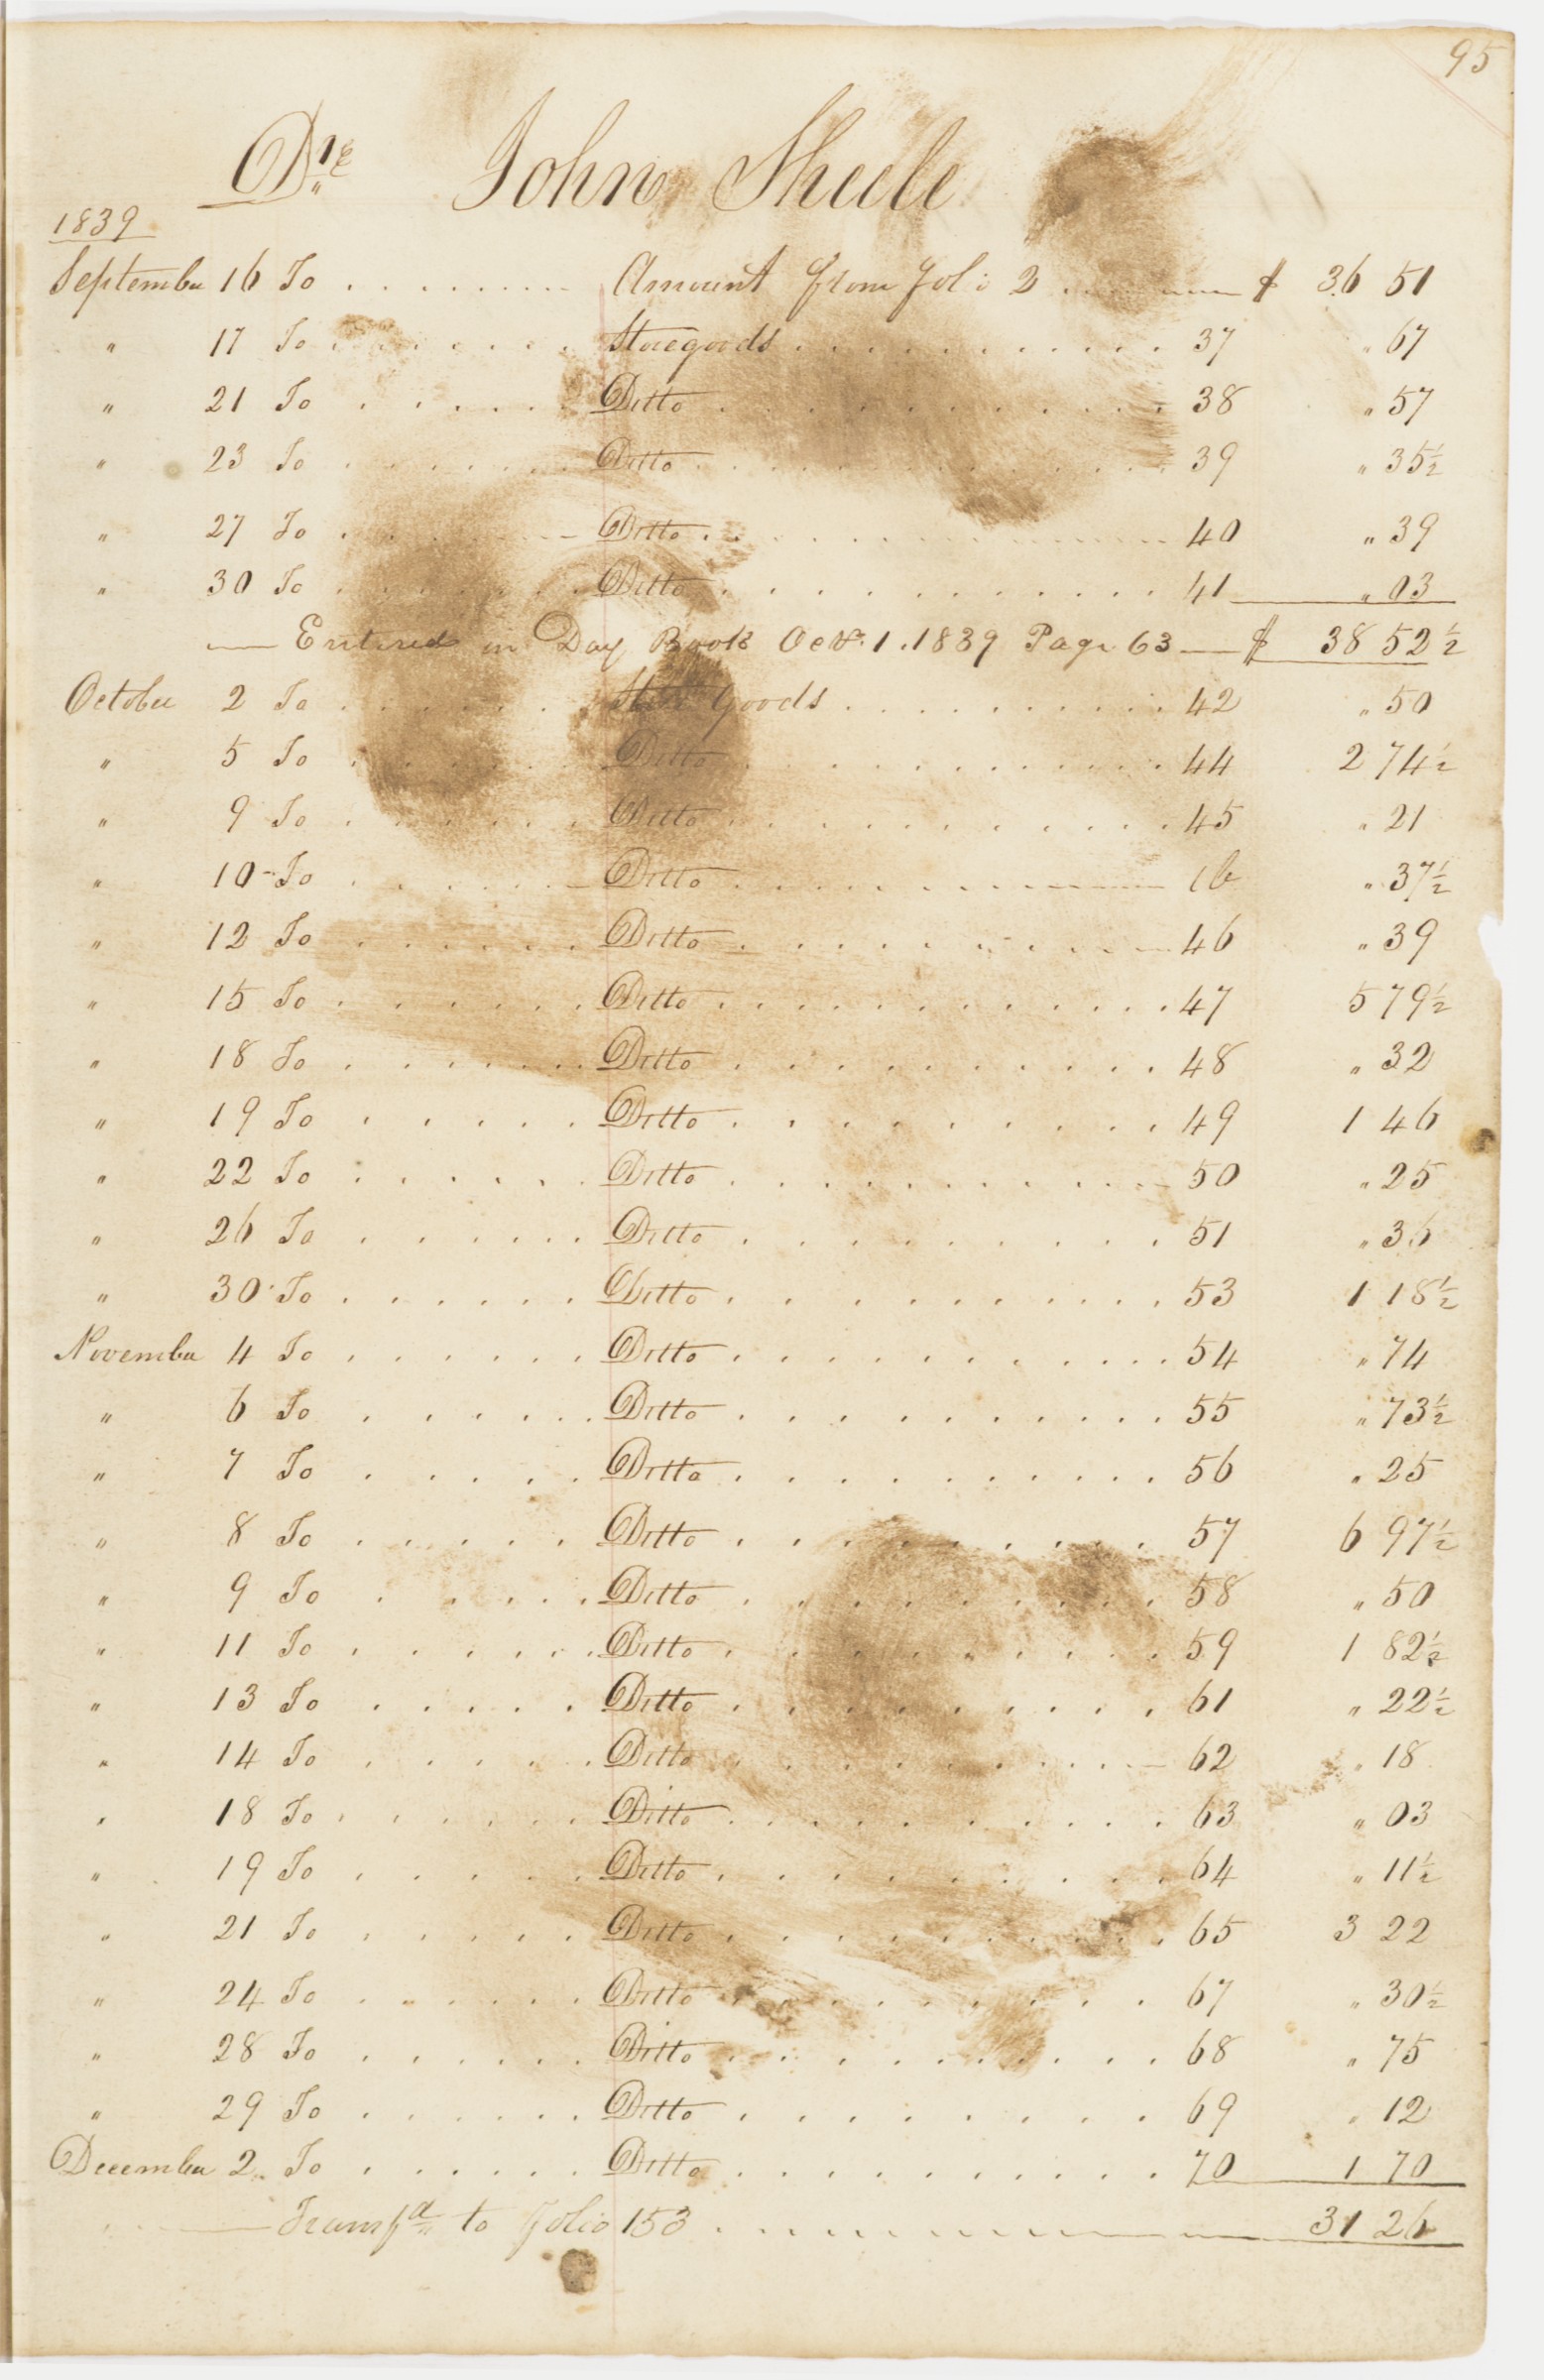 95
Dr. John Sheele
1839
September 16 To . . . . . . . . . Amount from Fol: 2 . . . . $ 36 51
" 17 To . . . . . . . Storegoods . . . . . . . . . . . 37 " 67
" 21 To . . . . . . Ditto . . . . . . . . . . . . 38 " 57
" 23 To . . . . . . . Ditto . . . . . . . . . . . . 39 " 35½
" 27 To . . . . . . Ditto . . . . . . . . . . . . 40 " 39
" 30 To . . . . . . . Ditto . . . . . . . . . . . . 41 " 03
— Entered in Day Book Octr. 1. 1839 Page 63 — $ 38 52½
October 2 To . . . . . . Store goods . . . . . . . . . . 42 " 50
" 5 To . . . . . . Ditto . . . . . . . . . . . . 44 2 74½
" 9 To . . . . . . Ditto . . . . . . . . . . . . 45 " 21
" 10 - To . . . . . . Ditto . . . . . . . . . . . . ib " 37½
" 12 To . . . . . . Ditto . . . . . . . . . . . . 46 " 39
" 15 To . . . . . . Ditto . . . . . . . . . . . . 47 5 79½
" 18 To . . . . . . Ditto . . . . . . . . . . . 48 " 32
" 19 To . . . . . Ditto . . . . . . . . . . 49 1 46
" 22 To . . . . . . Ditto . . . . . . . . . . . 50 " 25
" 26 To . . . . . . Ditto . . . . . . . . . . 51 " 36
" 30 To . . . . . . Ditto . . . . . . . . . . . 53 1 18½
November 4 To . . . . . . Ditto . . . . . . . . . . . . 54 " 74
" 6 To . . . . . . Ditto . . . . . . . . . . . 55 " 73½
" 7 To . . . . . Ditto . . . . . . . . . . . 56 " 25
" 8 To . . . . . Ditto . . . . . . . . . . . 57 6 97½
" 9 To . . . . . Ditto . . . . . . . . . . . 58 " 50
" 11 To . . . . . . Ditto . . . . . . . . . . . 59 1 82½
" 13 To . . . . . Ditto . . . . . . . . . . 61 " 22½
" 14 To . . . . . Ditto . . . . . . . . . . . 62 " 18
" 18 To . . . . . . Ditto . . . . . . . . . . 63 " 03
" 19 To . . . . . Ditto . . . . . . . . . . . 64 " 11½
" 21 To . . . . . Ditto . . . . . . . . . . . 65 3 22
" 24 To . . . . . . Ditto . . . . . . . . . . 67 " 30½
" 28 To . . . . . . Ditto . . . . . . . . . . . 68 " 75
" 29 To . . . . . . Ditto . . . . . . . . . 69 " 12
December 2 To . . . . . . Ditto . . . . . . . . . . . 70 1 70
— Transfd to Folio 153 . . . . . . . . . . 31 26